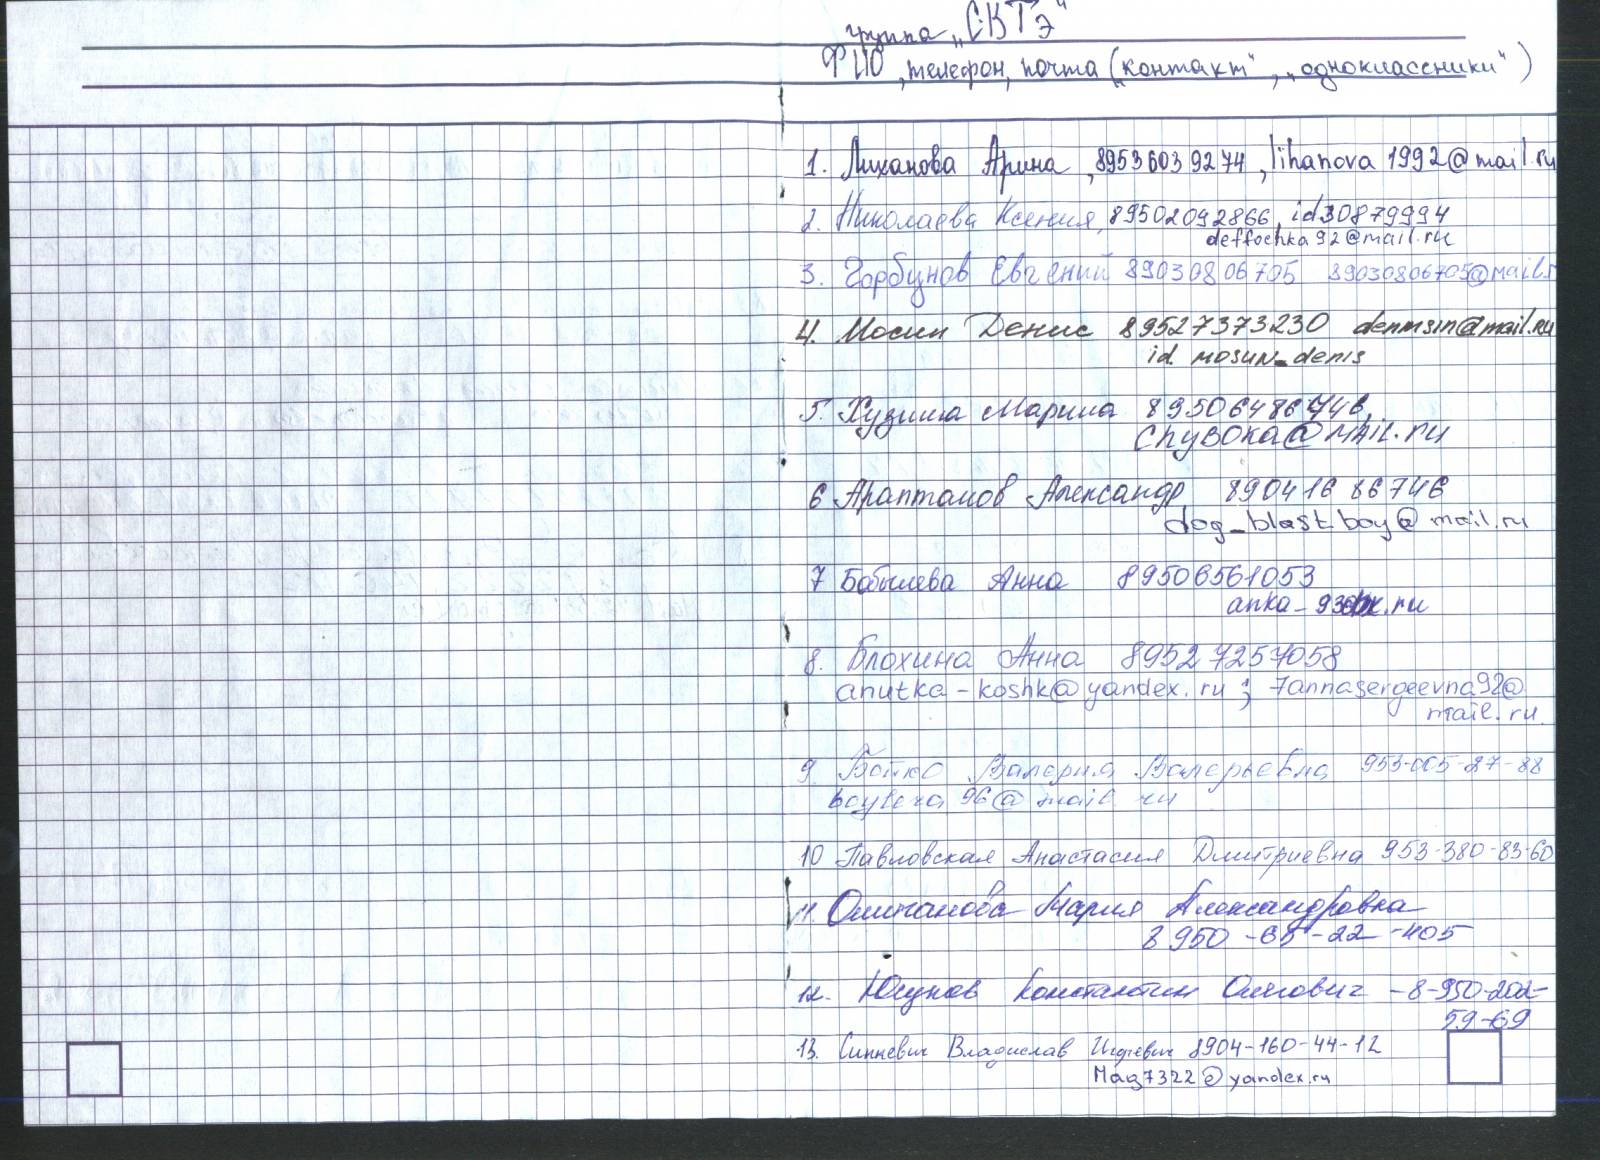 группа „СКТэ"
ФИО, телефон, почта („контакт", „одноклассники")
1. Лиханова Арина, 89536039274, lihanova1992@mail.ru
2. Николаева Ксения, 89502092866, id30879994
deffochka92@mail.ru
3. Горбунов Евгений 89030806705 89030806705@mail.r
4. Мосин Денис 89527373230 denmsin@mail.ru
id mosun_denis
5. Марина
chyboka@mail.ru
6 Александр 89041686746
dog_blast.boy@mail.ru
7 Бобылева Анна 89506561053
8. Блохина Анна 89527257058
anutka-koshk@yandex.ru; 7annasergeevna92@
mail.ru.
9 Бойко Валерия Валерьевна 953-005-27-88
10 Павловская Анастасия Дмитриевна 953-380-83-60
11. Мария Александровна
8950-65-22-405
12. Юсупов Константин Олегович -8-950-202-
59-69
13. Синкевич Владислав Игоревич 8904-160-44-12
Mag7322@yandex.ru